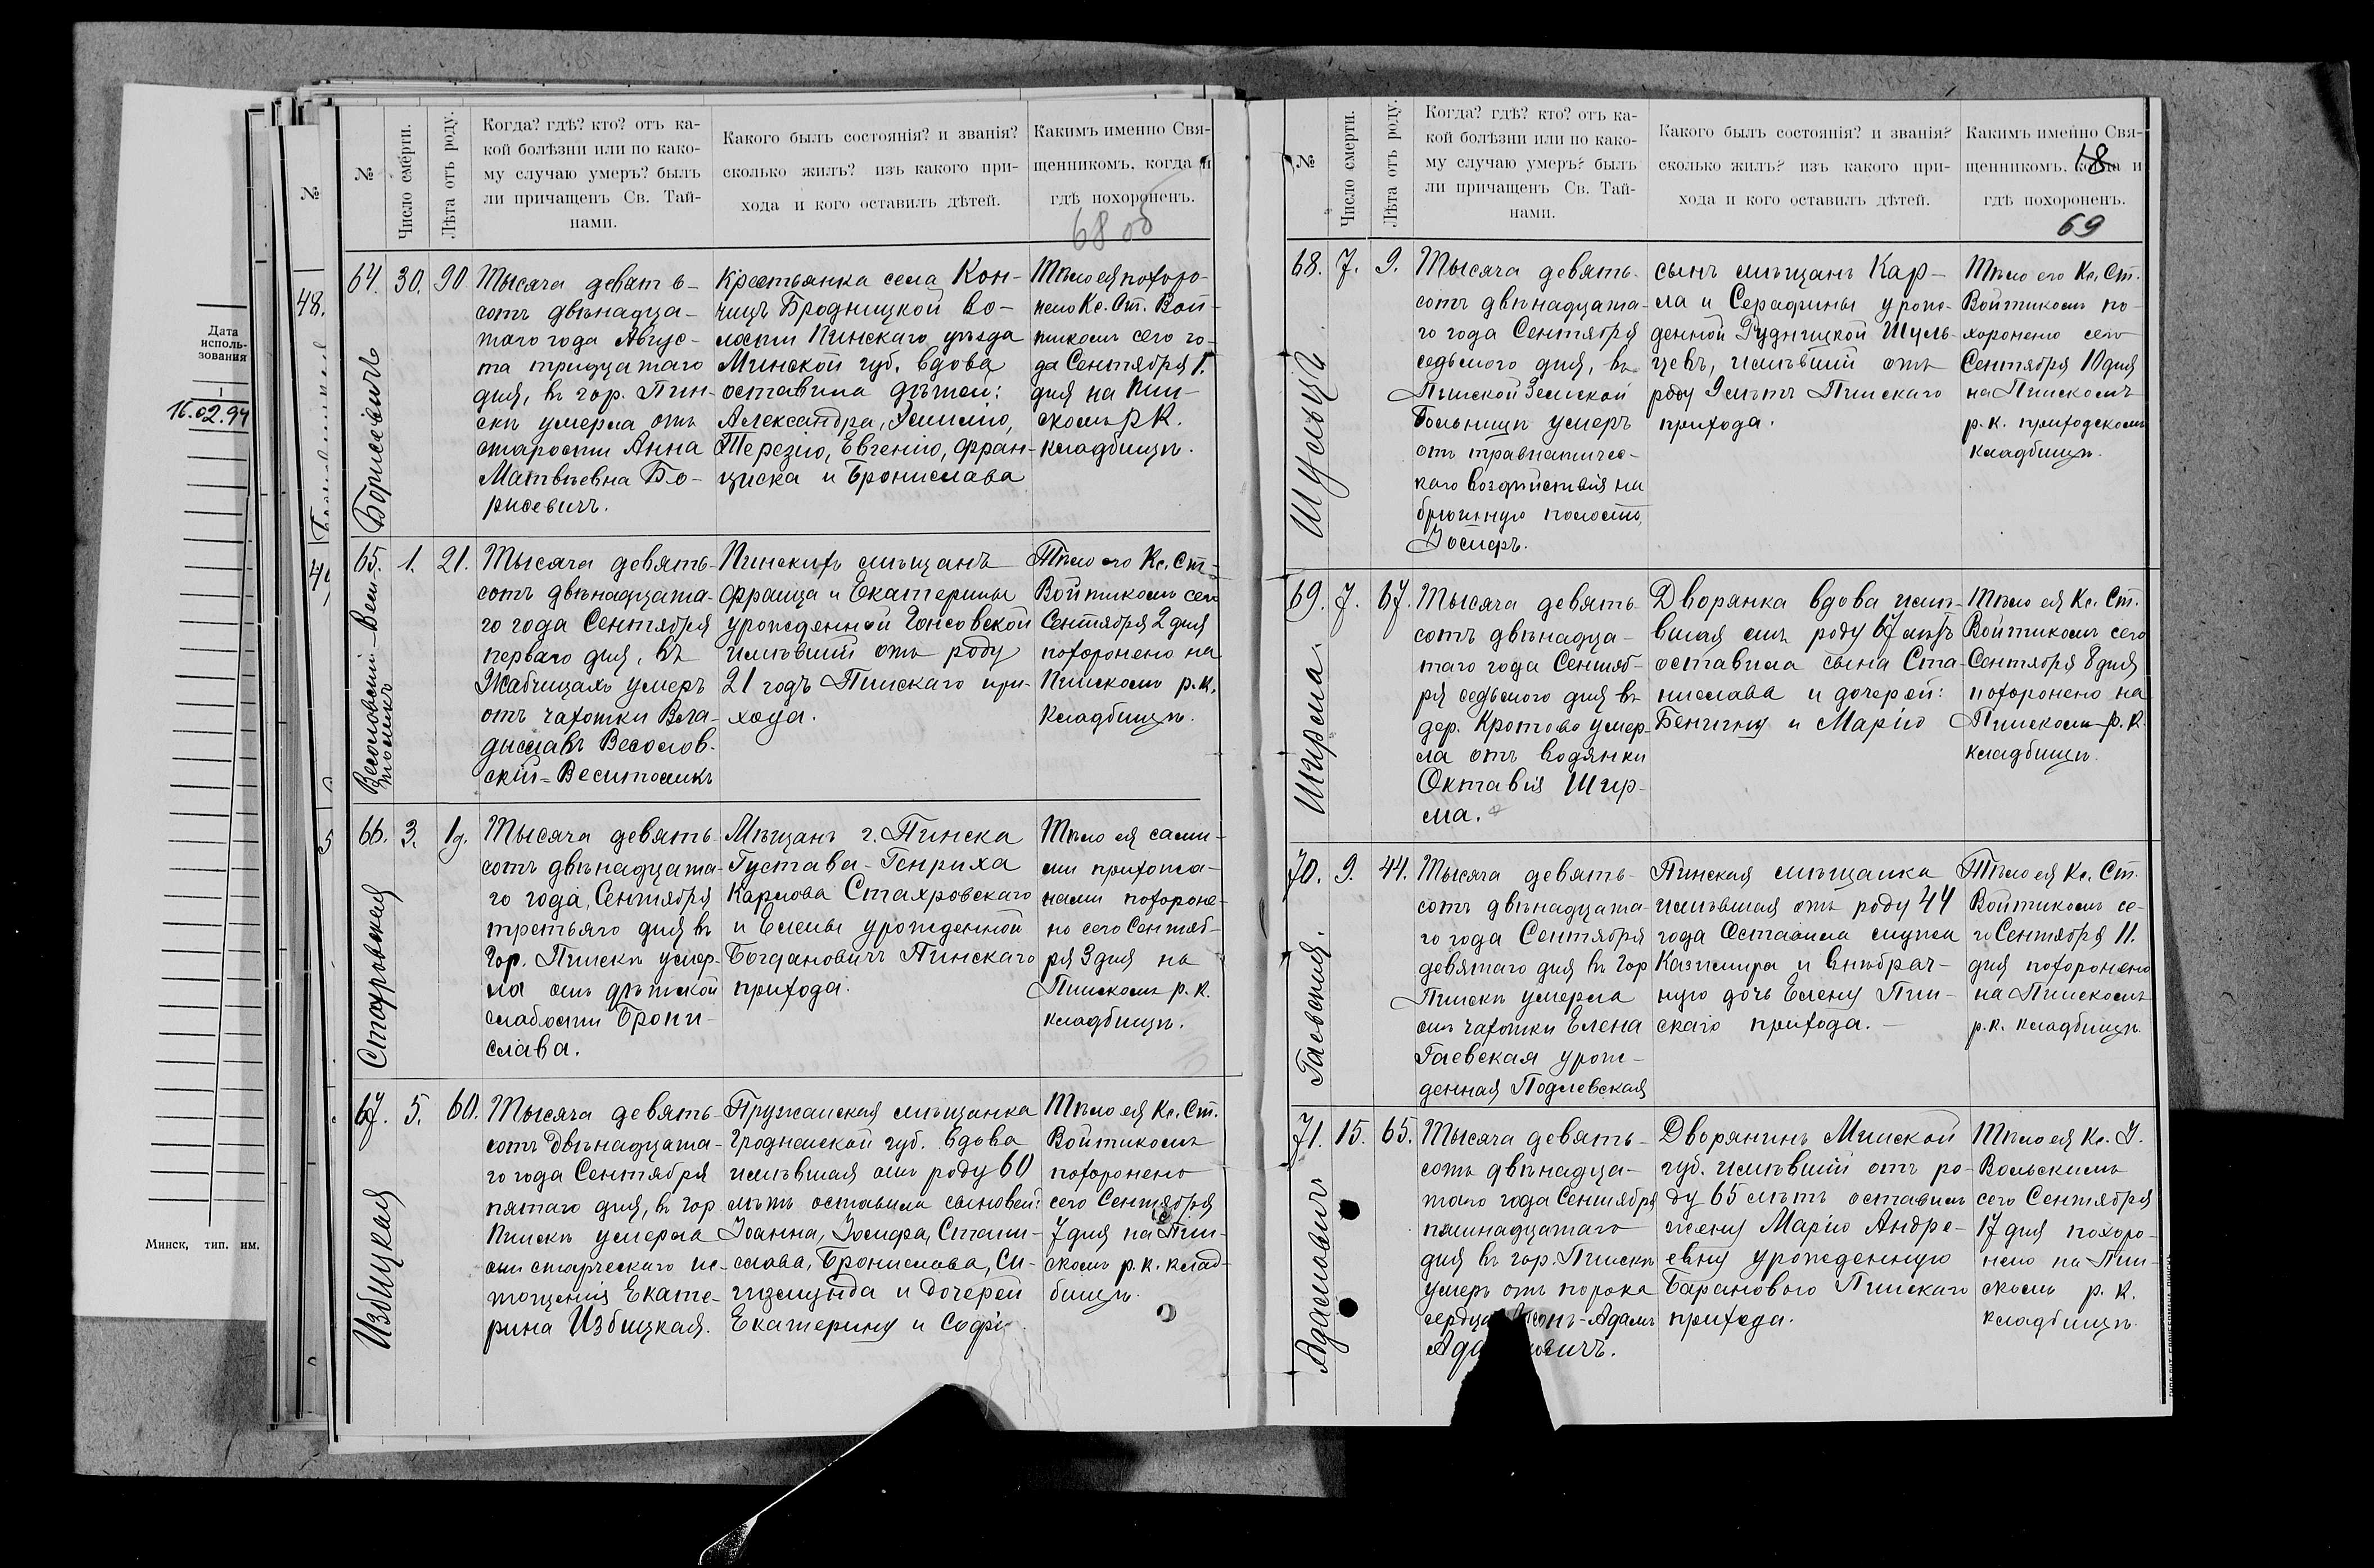 Дата
исполь-
зования
1
16.02.94
Минск, тип. им.
№
48.
№
Число смерти.
Лѣта отъ роду.
Когда? гдѣ? кто? отъ ка-
кой болѣзни или по како-
му случаю умеръ? былъ
ли причащенъ Св. Тай-
нами.
Какого былъ состоянія? и званія?
сколько жилъ? изъ какого при-
хода и кого оставилъ дѣтей.
Какимъ именно Свя-
щенникомъ, когда и
гдѣ похороненъ.
68 об
64. 30. 90
Борисевичъ
Тысяча девять-
сотъ двѣнадца-
таго года Авгус-
та тридцатаго
дня, въ гор. Пин-
скѣ умерла отъ
старости Анна
Матвѣевна Бо-
рисевичъ.
Крестьянка села Кон-
чицъ Бродницкой во-
лости Пинскаго уѣзда
Минской губ. вдова
оставила дѣтей:
Александра, Эмилію,
Терезію, Евгенію, Фран-
циска и Бронислава
Тѣло ея похоро-
нено Кс. Ст. Вой-
тикомъ сего го-
да Сентября 1.
дня на Пин-
скомъ Р.К.
кладбищѣ.
65. 1. 21.
Весоловскій-Веси-
толикъ
Тысяча девять-
сотъ двѣнадцата-
го года Сентября
перваго дня, въ
Жабчицахъ умеръ
отъ чахотки Вла-
диславъ Весолов-
скій-Веситоликъ
Пинскихъ мѣщанъ
Франца и Екатерины
урожденной Гонсовской
имѣвшій отъ роду
21 годъ Пинскаго при-
хода.
Тѣло его Кс. Ст.
Войтикомъ сего
Сентября 2 дня
похоронено на
Пинскомъ р.к.
кладбищѣ.
66. 3. 1 д.
Стахровская
Тысяча девять-
сотъ двѣнадцата-
го года, Сентября
третьяго дня въ
гор. Пинскѣ умер-
ла отъ дѣтской
слабости Брони-
слава.
Мѣщанъ г. Пинска
Густава-Генриха
Карлова Стахровскаго
и Елены урожденной
Богдановичъ Пинскаго
прихода.
Тѣло ея сами-
ми прихожа-
нами похороне-
но сего Сентяб-
ря 3 дня на
Пинскомъ р.к.
кладбищѣ.
67. 5. 60.
Избицкая
Тысяча девять-
сотъ двѣнадцата-
го года Сентября
пятаго дня, въ гор
Пинскѣ умерла
отъ старческаго ис-
тощенія Екате-
рина Избицкая.
Пружанская мѣщанка
Гродненской губ. вдова
имѣвшая отъ роду 60
лѣтъ оставила сыновей:
Іоанна, Іосифа, Стани-
слава, Бронислава, Си-
гизмунда и дочерей
Екатерину и Софі
Тѣло ея Кс. Ст.
Войтикомъ
похоронено
сего Сентября
7 дня на Пин-
скомъ р.к. клад-
бищѣ.
№
Число смерти.
Лѣта отъ роду.
Когда? гдѣ? кто? отъ ка-
кой болѣзни или по како-
му случаю умеръ? былъ
ли причащенъ Св. Тай-
нами.
Какого былъ состоянія? и званія?
сколько жилъ? изъ какого при-
хода и кого оставилъ дѣтей.
Какимъ именно Свя-
щенникомъ, когда и
гдѣ похороненъ.
69
68. 7. 9.
Шульцъ
Тысяча девять-
сотъ двѣнадцата-
го года Сентября
седьмого дня, въ
Пинской Земской
Больницѣ умеръ
отъ травматичес-
каго воздѣйствія на
брюшную полость,
Іосифъ.
сынъ мѣщанъ Кар-
ла и Серафины урож-
денной Рудницкой Шуль-
цевъ, имѣвшій отъ
роду 9 лѣтъ Пинскаго
прихода.
Тѣло его Кс. Ст.
Войтикомъ по-
хоронено сего
Сентября 10 дня
на Пинскомъ
р.к. приходскомъ
кладбищѣ.
69. 7. 67.
Ширма.
Тысяча девять-
сотъ двѣнадца-
таго года Сентяб-
ря седьмого дня въ
дер. Кротово умер-
ла отъ водянки
Октавія Шир-
ма.
Дворянка вдова имѣ-
вшая отъ роду 67 лѣтъ
оставила сына Ста-
нислава и дочерей:
Бенигну и Марію
Тѣло ея Кс. Ст.
Войтикомъ сего
Сентября 8 дня
похоронено на
Пинскомъ р.к.
кладбищѣ.
70. 9. 44.
Гаевская.
Тысяча девять-
сотъ двѣнадцата-
го года Сентября
девятаго дня въ гор
Пинскѣ умерла
отъ чахотки Елена
Гаевская урож-
денная Подлевская
Пинская мѣщанка
имѣвшая отъ роду 44
года Оставила мужа
Казимира и внѣбрач-
ную дочь Елену Пин-
скаго прихода.
Тѣло ея Кс. Ст.
Войтикомъ се-
го Сентября 11.
дня похоронено
на Пинскомъ
р.к. кладбищѣ.
71. 15. 65.
Адамовичъ
Тысяча девять-
сотъ двѣнадца-
таго года Сентября
пятнадцатаго
дня въ гор. Пинскѣ
умеръ отъ порока
сердца -Адамъ
Дворянинъ Минской
губ. имѣвшій отъ ро-
ду 65 лѣтъ оставилъ
жену Марію Андре-
евну урожденную
Барановую Пинскаго
прихода.
Тѣло ея Кс. І.
Вольскимъ
сего Сентября
17 дня похоро-
нено на Пин-
скомъ р.к.
кладбищѣ.